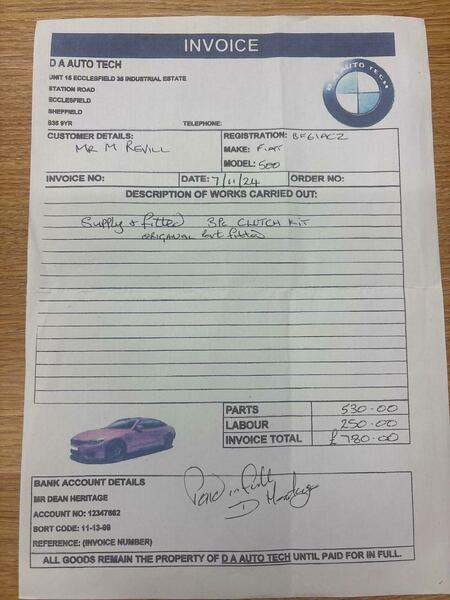 INVOICE
D A AUTO TECH
UNIT 15 ECCLESFIELD 35 INDUSTRIAL ESTATE
STATION ROAD
ECCLESFIELD
SHEFFIELD
S35 9YR TELEPHONE:
D A AUTO TECH
CUSTOMER DETAILS: REGISTRATION: BF61ACZ
MR M REVILL MAKE: FIAT
MODEL: 500
INVOICE NO: DATE: 7/11/24 ORDER NO:
DESCRIPTION OF WORKS CARRIED OUT:
Supply + fitted 3pc CLUTCH KIT
ORIGANAL fitted
PARTS 530.00
LABOUR 250.00
INVOICE TOTAL £780.00
BANK ACCOUNT DETAILS
Paid in Full
MR DEAN HERITAGE
D
ACCOUNT NO: 12347662
SORT CODE: 11-13-06
REFERENCE: (INVOICE NUMBER)
ALL GOODS REMAIN THE PROPERTY OF D A AUTO TECH UNTIL PAID FOR IN FULL.